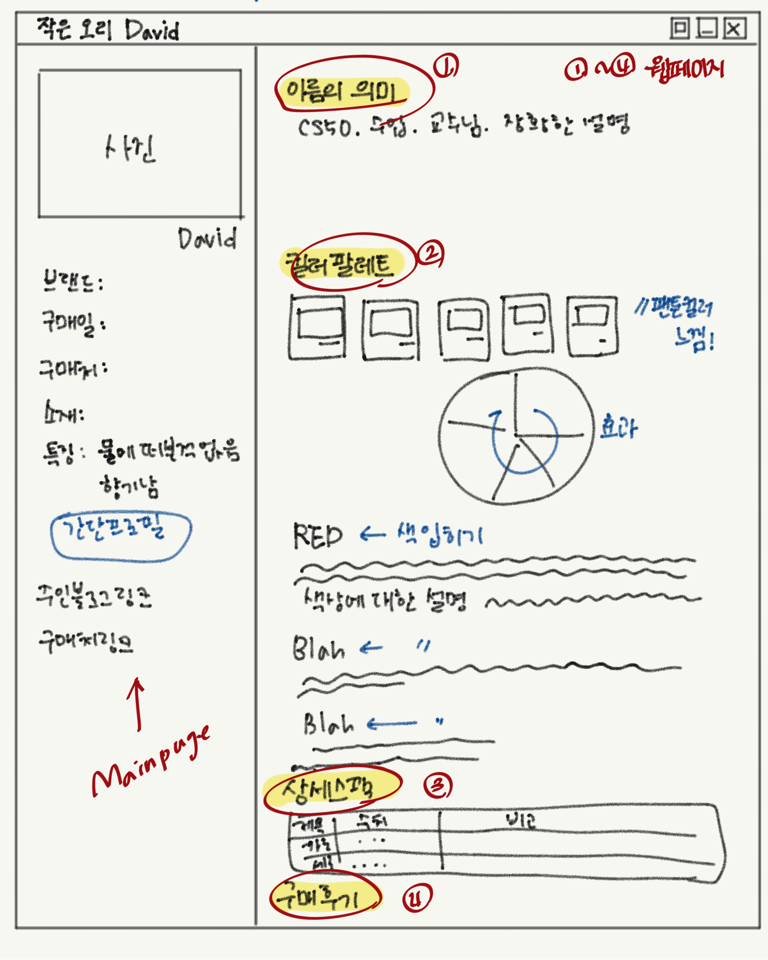 작은 오리 David
사진
David
브랜드:
구매일:
구매처:
소재:
특징: 물에 떠본적 없음
향기남
간단프로필
주인블로그링크
구매처링크
Mainpage
이름의 의미 ①
①~④ 웹페이지
CS50. 수업. 교수님. 장황한 설명
컬러팔레트 ②
// 팬톤컬러
느낌!
효과
RED ← 색입히기
색상에 대한 설명
Blah ← "
Blah ← "
상세스펙 ③
제목 수치 비고
가로 ...
세로 ....
구매후기 ④